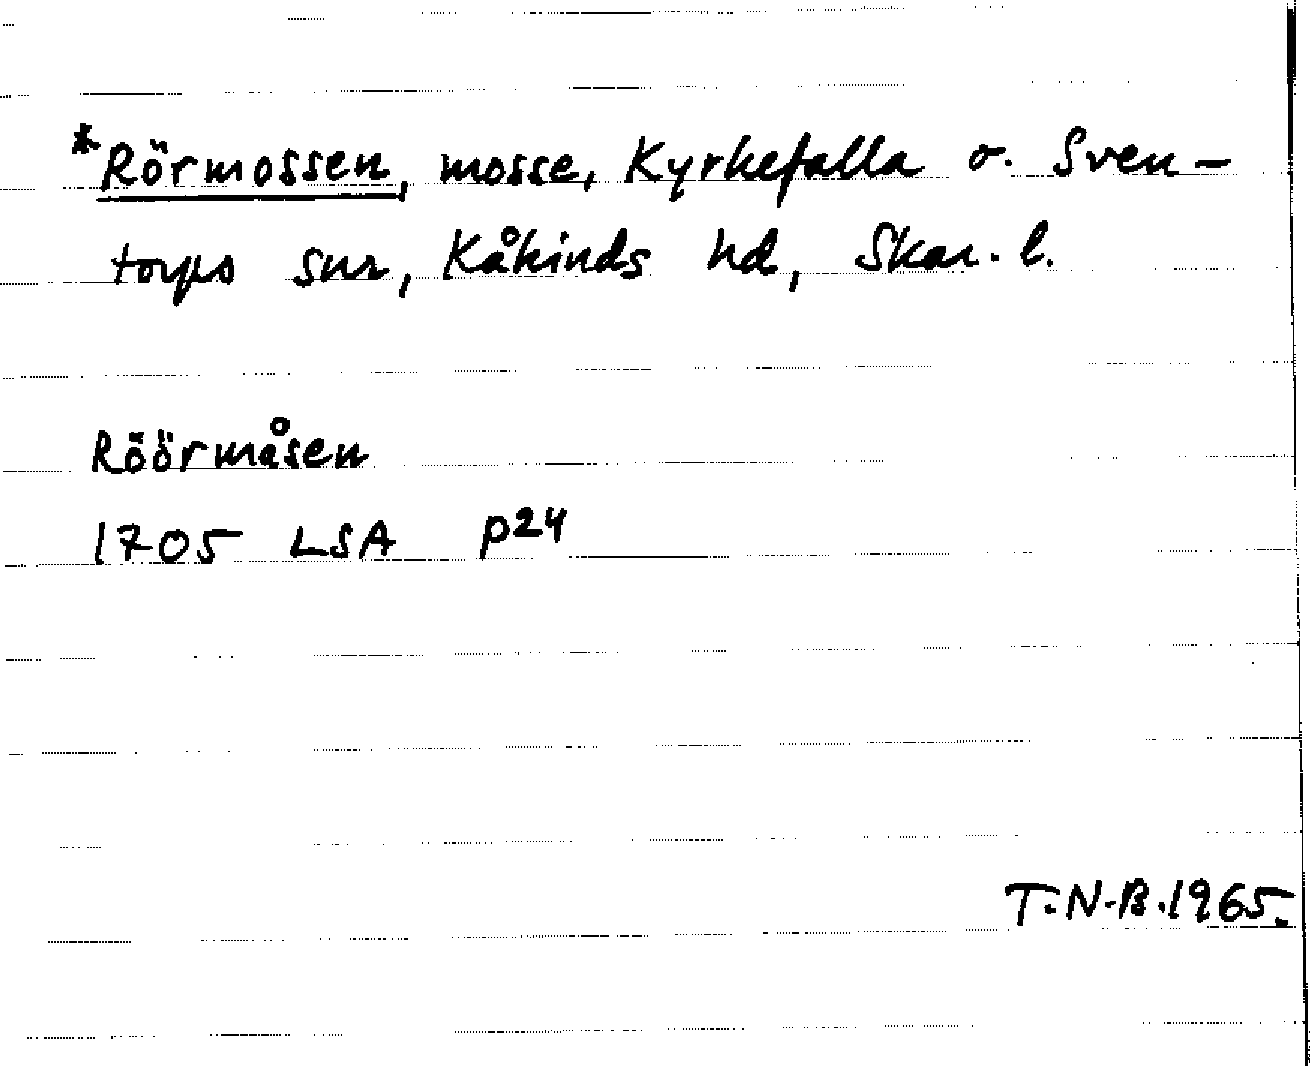 *Rörmossen, mosse, Kyrkefalla o. Sven-
torps snr, Kåkinds hd, Skar. l.
Röörmåsen
1705 LSA P24
T.N-B.1965.